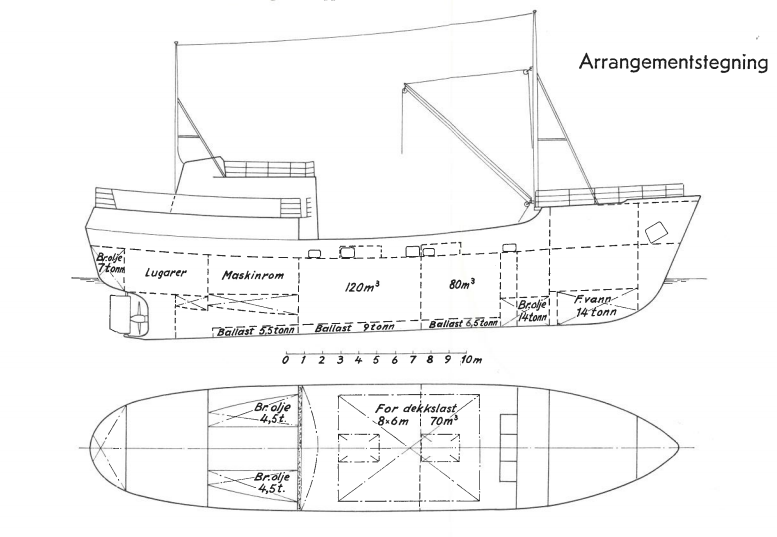 Arrangementstegning
Br.olje
7 tonn
Lugarer
Maskinrom
120m³
80m³
Br.olje
14tonn
F.vann
14 tonn
Ballast 5,5tonn
Ballast 9 tonn
Ballast 6,5tonn
0 1 2 3 4 5 6 7 8 9 10m
Br.olje
4,5t.
For dekkslast
8×6m 70m³
Br.olje
4,5t.